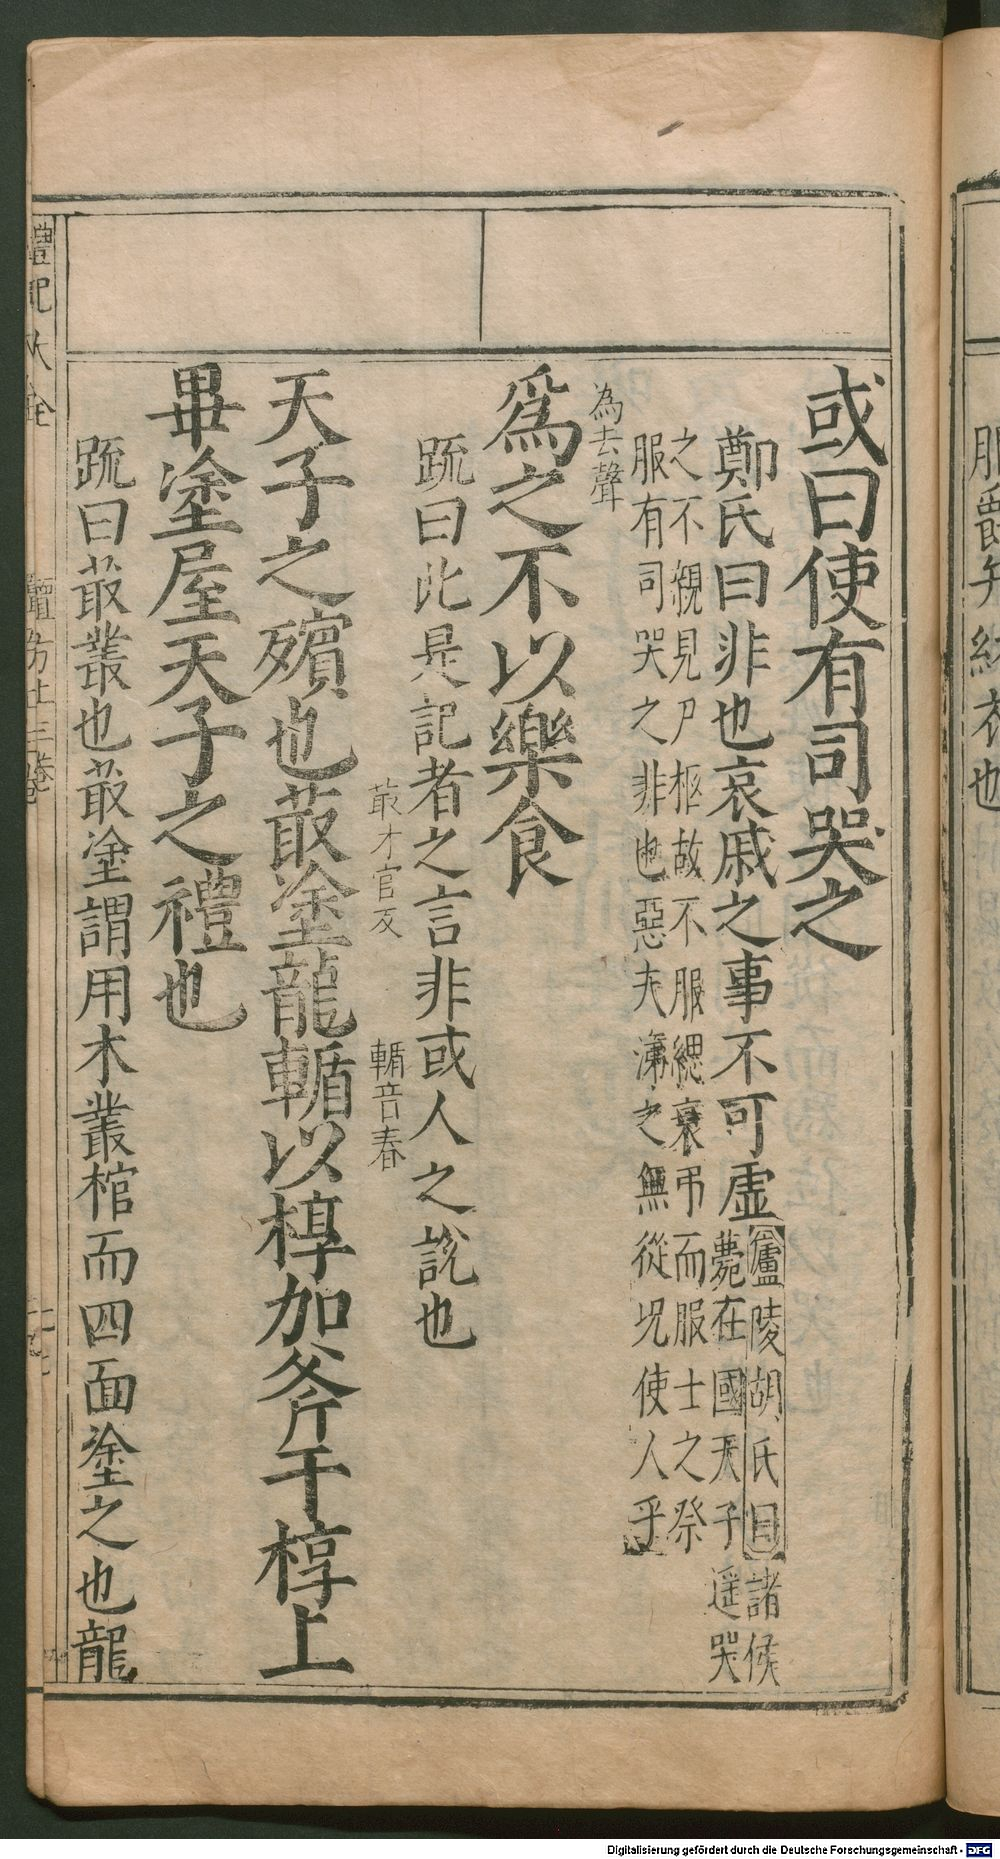 或曰使有司哭之
鄭氏曰非也哀戚之事不可虛
廬陵胡氏曰諸侯
薨在國天子遥哭
之不親見尸柩故不服緦衰弔而服士之祭
服有司哭之非也惡夫涕之無從况使人乎
為去聲
爲之不以樂食
疏曰此是記者之言非或人之說也
菆才官反 輴音春
天子之殯也菆塗龍輴以椁加斧于椁上
畢塗屋天子之禮也
疏曰菆叢也菆塗謂用木叢棺而四面塗之也龍
禮記大全
Digitalisierung gefördert durch die Deutsche Forschungsgemeinschaft - DFG